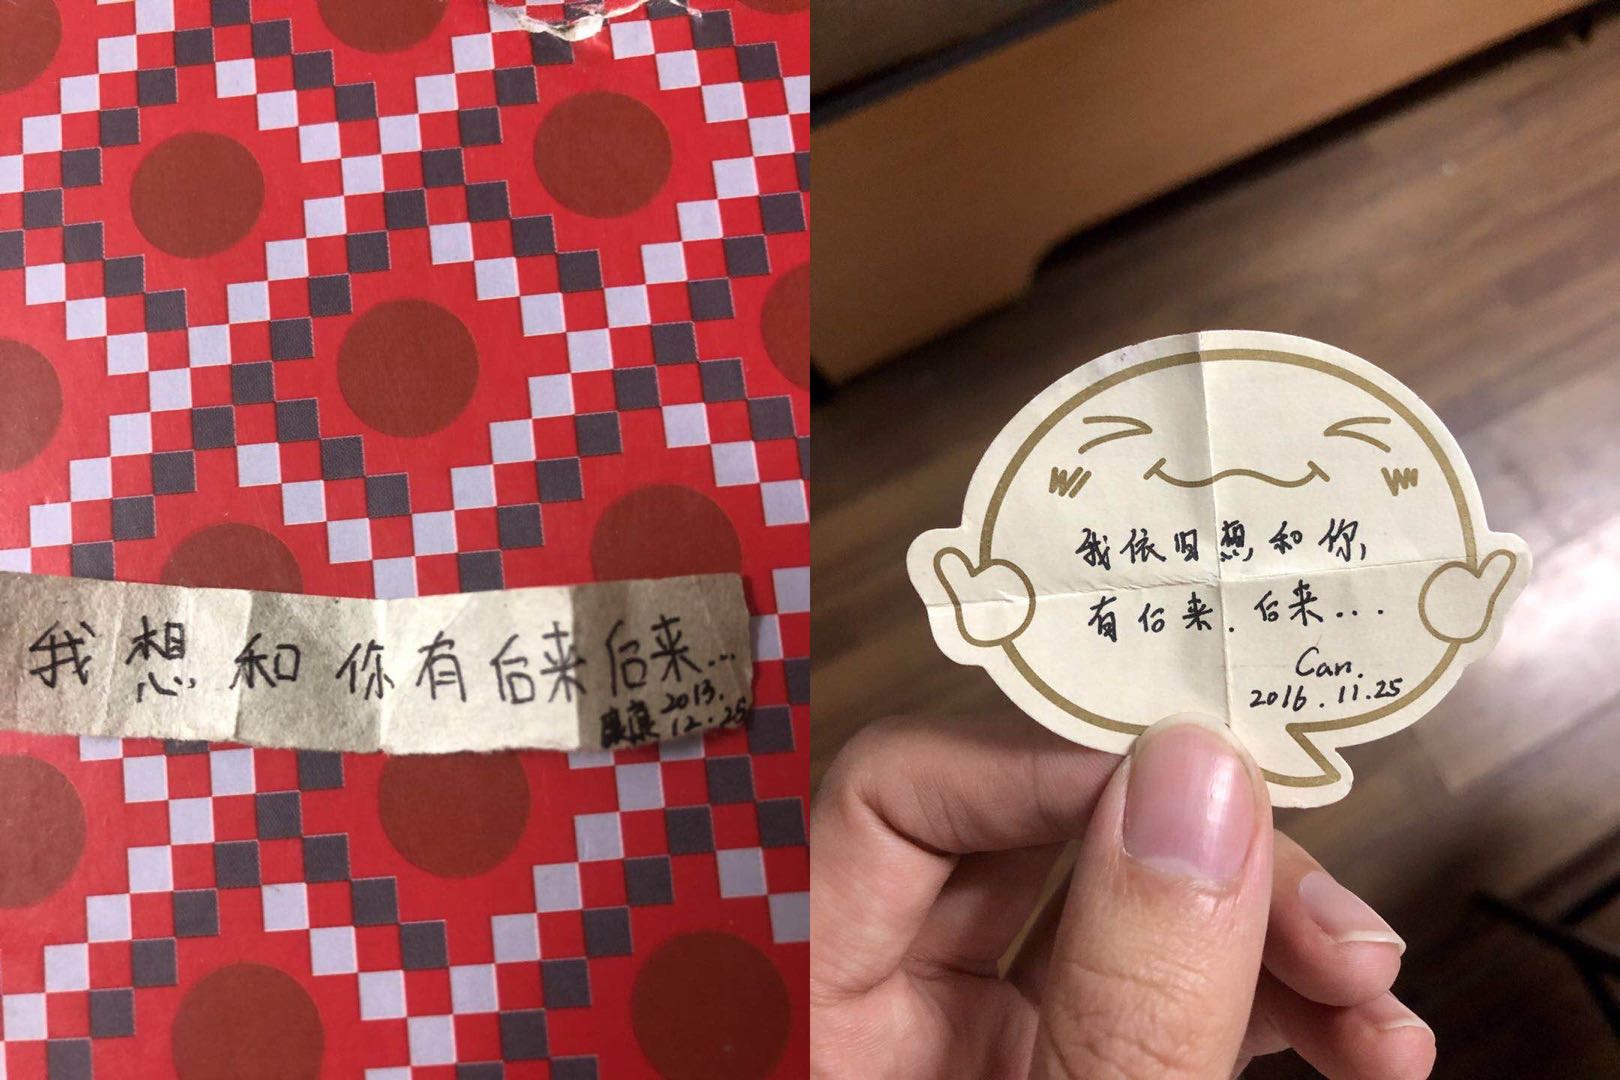 我想和你有后来后来...
2013.
12.25
我依旧想和你,
有后来.后来...
Can.
2016.11.25